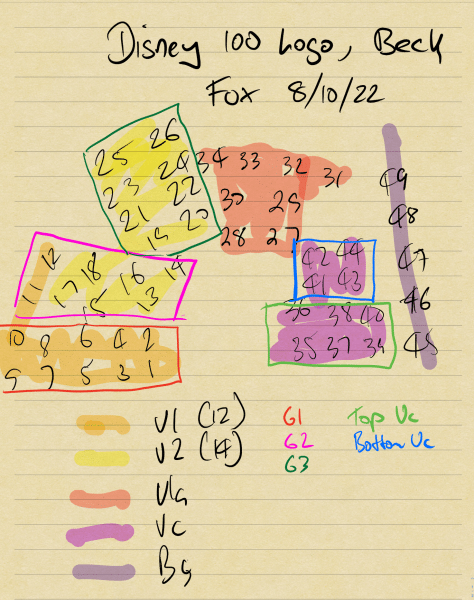 Disney 100 Logo, Beck
Fox 8/10/22
25 26
23 24 34 33 32 31
21 22 30 29 49
19 20 28 27 48
11 12 17 18 16 14 42 44 47
15 13 41 43
10 8 6 4 2 36 38 40 46
9 7 5 3 1 35 37 39 45
V1 (12) G1 Top Vc
V2 (14) G2 Bottom Vc
G3
Vla
Vc
Bs